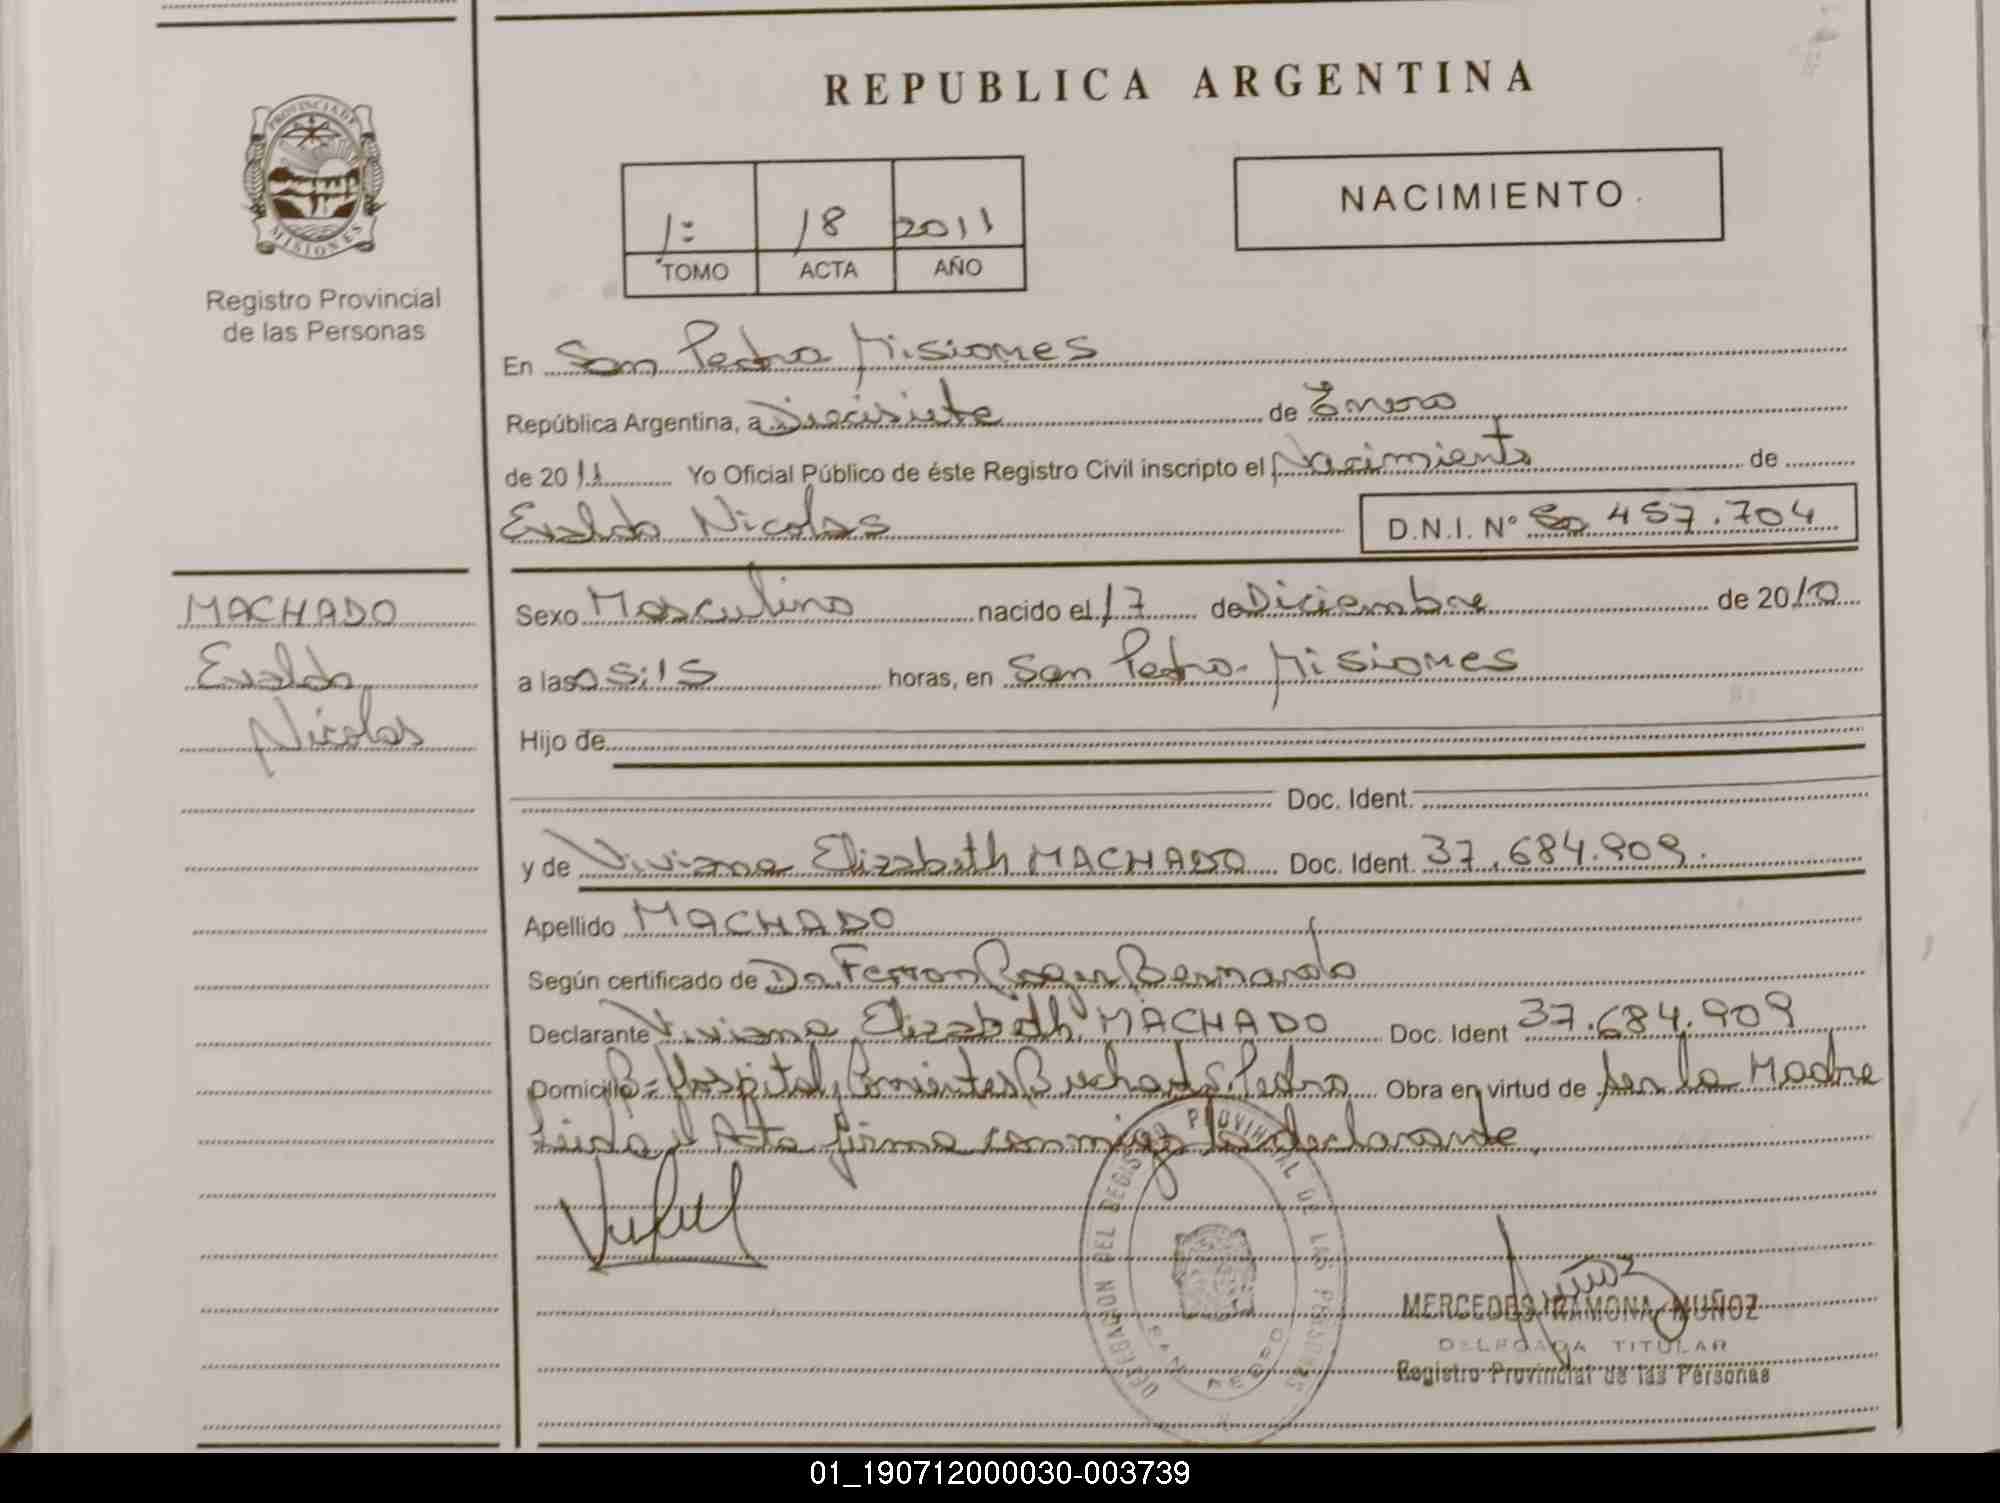 REPUBLICA ARGENTINA
PROVINCIA DE
MISIONES
Registro Provincial
de las Personas
1: 18 2011
TOMO ACTA AÑO
NACIMIENTO
En San Pedro Misiones
República Argentina, a Diecisiete de Enero
de 2011 Yo Oficial Público de éste Registro Civil inscripto el Nacimiento de
Evaldo Nicolas D.N.I. Nº 50.457.704
MACHADO
Evaldo
Nicolas
Sexo Masculino nacido el 17 de Diciembre de 2010
a las 05:15 horas, en San Pedro. Misiones
Hijo de
Doc. Ident.
y de Viviana Elizabeth MACHADO Doc. Ident. 37.684.909.
Apellido MACHADO
Según certificado de Dr. Ferron Roger Bernardo
Declarante Viviana Elizabeth MACHADO Doc. Ident 37.684.909
Domicilio Bº Hospital, Corrientes Buchard S. Pedro Obra en virtud de ser la Madre
Leida el Acta firma conmigo la declarante
DELEGACION DEL REGISTRO PROVINCIAL DE LAS PERSONAS
SAN PEDRO
MERCEDES RAMONA MUÑOZ
DELEGADA TITULAR
Registro Provincial de las Personas
01_190712000030-003739